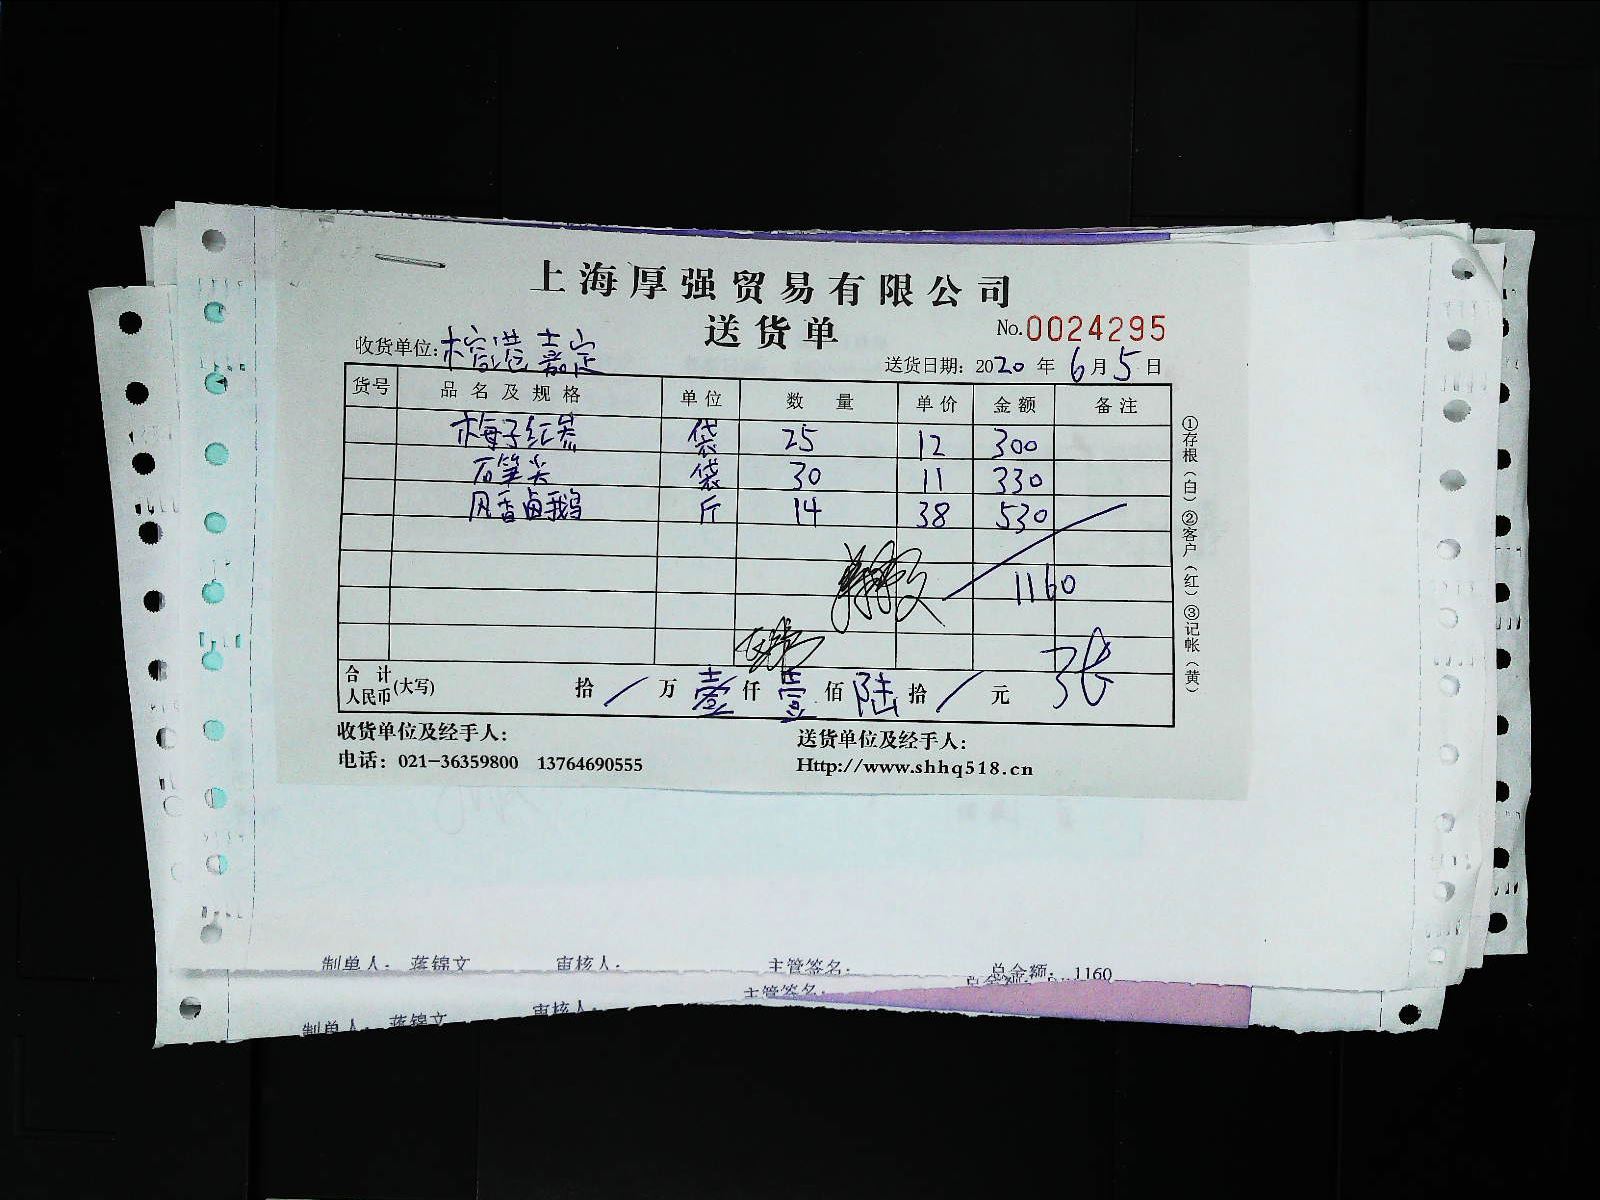 上海厚强贸易有限公司
送货单
No.0024295
收货单位:榕港嘉定
送货日期: 2020 年 6 月 5 日
货号 品名及规格 单位 数量 单价 金额 备注
梅子红荔 袋 25 12 300
石笋尖 袋 30 11 330
风香卤鹅 斤 14 38 530
1160
合计人民币(大写) 拾 / 万 壹 仟 壹 佰 陆 拾 / 元
张
收货单位及经手人:
送货单位及经手人:
电话: 021-36359800 13764690555
Http://www.shhq518.cn
①存根(白)②客户(红)③记帐(黄)
制单人: 蒋锦文 审核人: 主管签名: 总金额: 1160
制单人: 蒋锦文 审核人: 主管签名: 总金额: